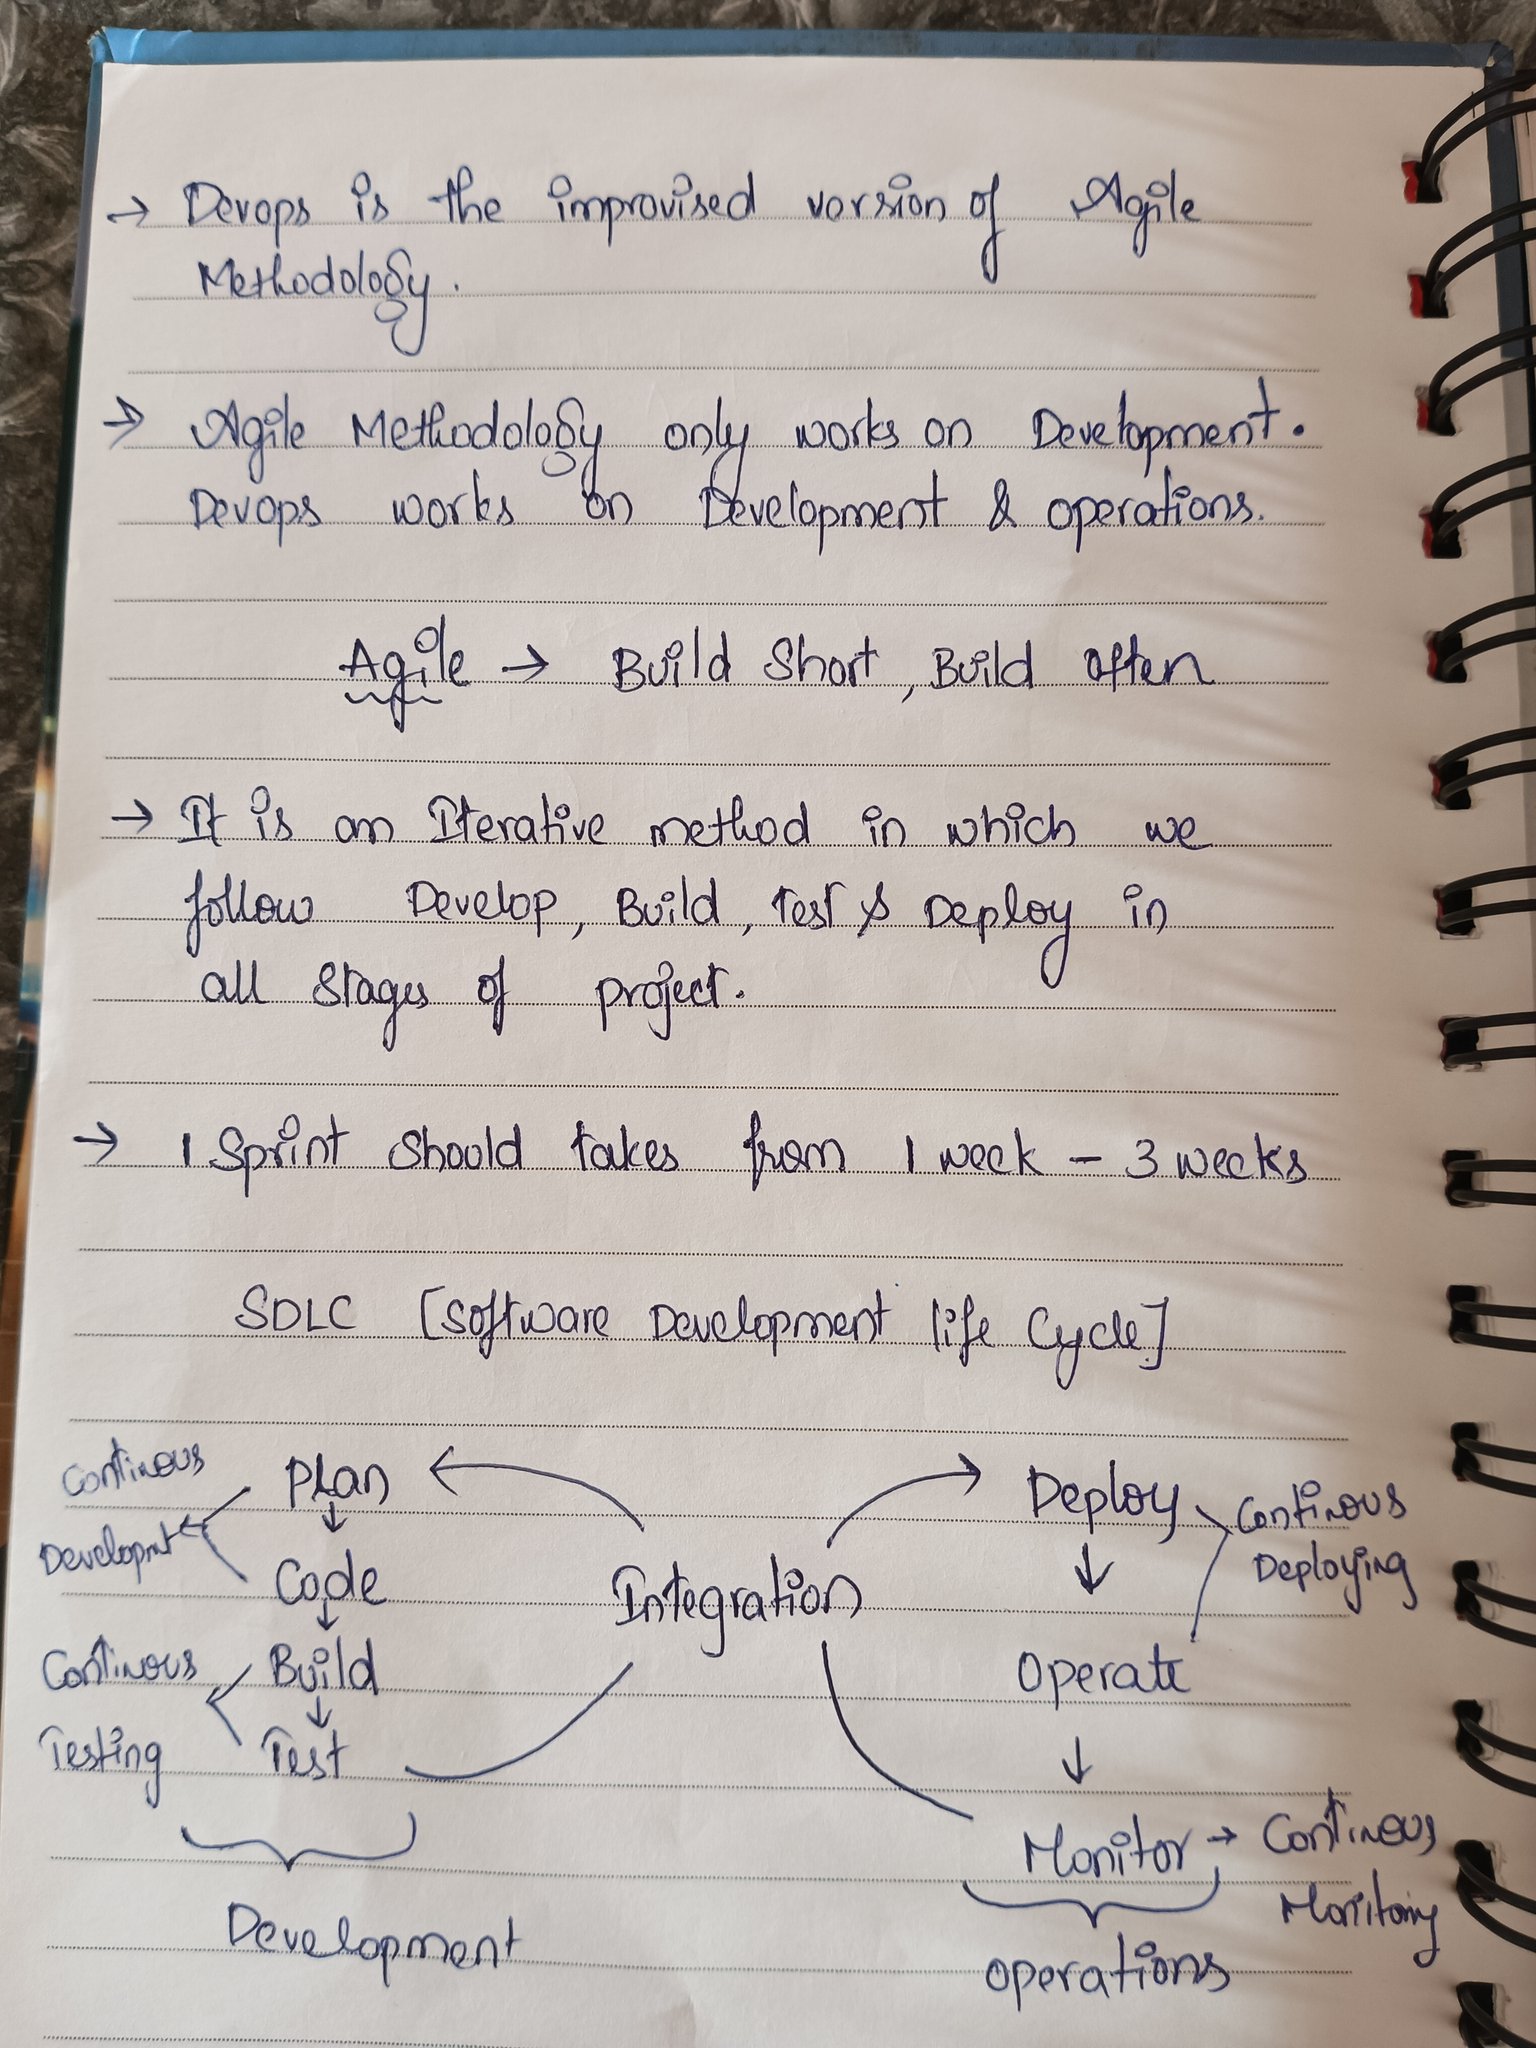 → Devops is the improvised version of Agile
Methodology.
→ Agile Methodology only works on Development.
Devops works on Development & operations.
Agile → Build Short, Build often
→ It is an Iterative method in which we
follow Develop, Build, Test & Deploy in
all stages of project.
→ 1 Sprint should takes from 1 week - 3 weeks
SDLC [Software Development life Cycle]
Continous
Developmt
Plan
↓
Code
↓
Continous
Testing
Build
↓
Test
Development
Integration
Deploy
↓
Continous
Deploying
Operate
↓
Monitor → Continous
Monitoring
operations